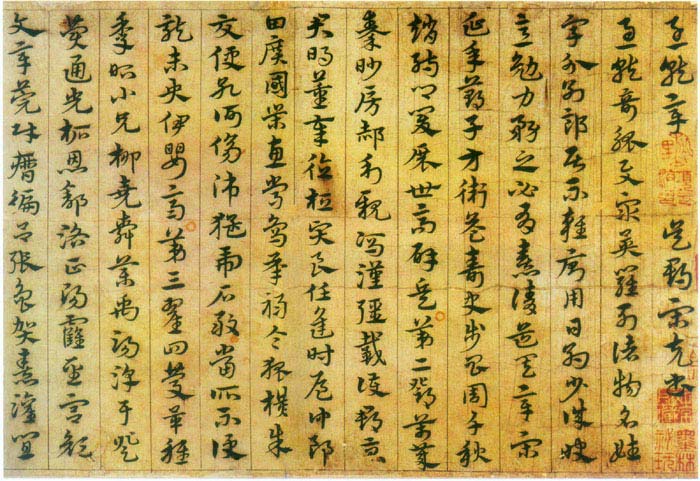 急就章 吳郡宋克書
急就奇觚與衆異羅列諸物名姓
字分別部居不雜廁用日約少誠快
意勉力務之必有憙請道其章宋
延年鄭子方衛益壽史步昌周千秋
趙孺卿爰展世高辟兵第二鄧萬歲
秦眇房郝利親馮漢彊戴護郡景
君明董奉德桓賢良任逢時侯仲郎
由廣國榮惠常烏承祿令狐橫朱
交便孔何傷師猛虎石敢當所不侵
龍未央伊嬰齊第三翟回慶畢稚
季昭小兄柳堯舜藥禹湯淳于登
費通光柘恩舒路正陽霍聖宮顏
文章莞財歷徧呂張魯賀憙灌宜